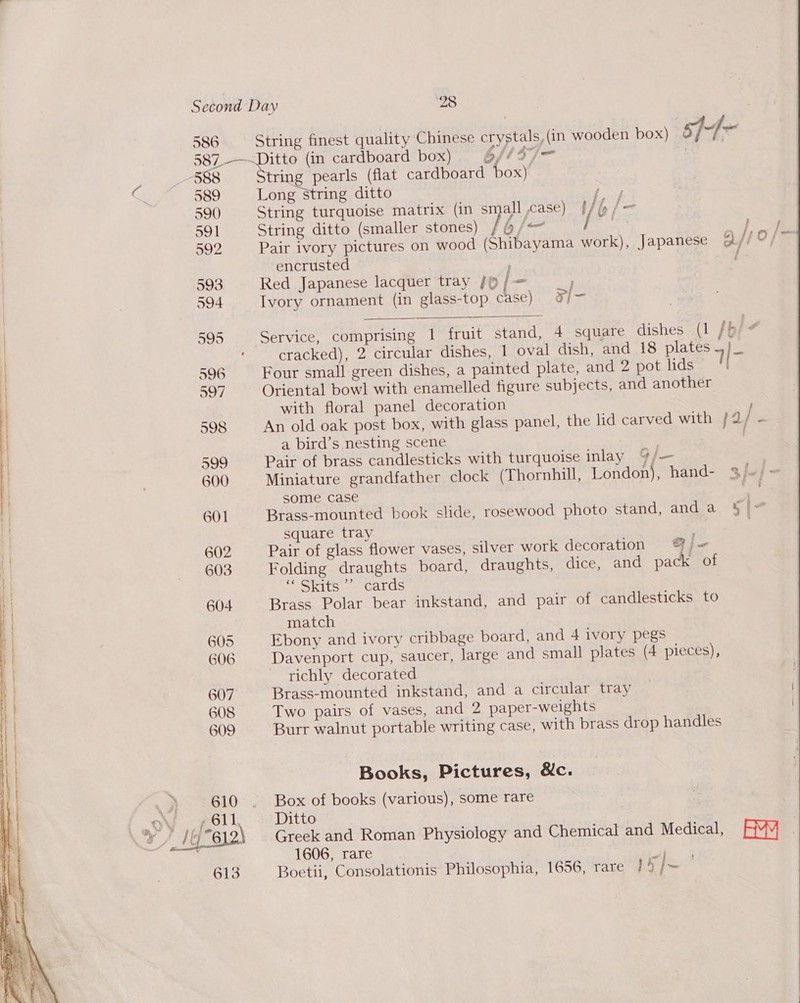 Second Day 28
586 String finest quality Chinese crystals, (in wooden box)
587 Ditto (in cardboard box)
588 String pearls (flat cardboard box)
589 Long string ditto
590 String turquoise matrix (in small case) 1/6/-
591 String ditto (smaller stones) /6/-
592 Pair ivory pictures on wood (Shibayama work), Japanese 2/10/-
encrusted
593 Red Japanese lacquer tray 10/-
594 Ivory ornament (in glass-top case)
595 Service, comprising 1 fruit stand, 4 square dishes (1
cracked), 2 circular dishes, 1 oval dish, and 18 plates
596 Four small green dishes, a painted plate, and 2 pot lids
597 Oriental bowl with enamelled figure subjects, and another
with floral panel decoration
598 An old oak post box, with glass panel, the lid carved with 12/-
a bird's nesting scene
599 Pair of brass candlesticks with turquoise inlay
600 Miniature grandfather clock (Thornhill, London), hand- 3/-/-
some case
601 Brass-mounted book slide, rosewood photo stand, and a
square tray
602 Pair of glass flower vases, silver work decoration
603 Folding draughts board, draughts, dice, and pack of
“Skits” cards
604 Brass Polar bear inkstand, and pair of candlesticks to
match
605 Ebony and ivory cribbage board, and 4 ivory pegs
606 Davenport cup, saucer, large and small plates (4 pieces),
richly decorated
607 Brass-mounted inkstand, and a circular tray
608 Two pairs of vases, and 2 paper-weights
609 Burr walnut portable writing case, with brass drop handles
Books, Pictures, &c.
610 Box of books (various), some rare
611 Ditto
612 Greek and Roman Physiology and Chemical and Medical,
1606, rare
613 Boetii, Consolationis Philosophia, 1656, rare 15/-